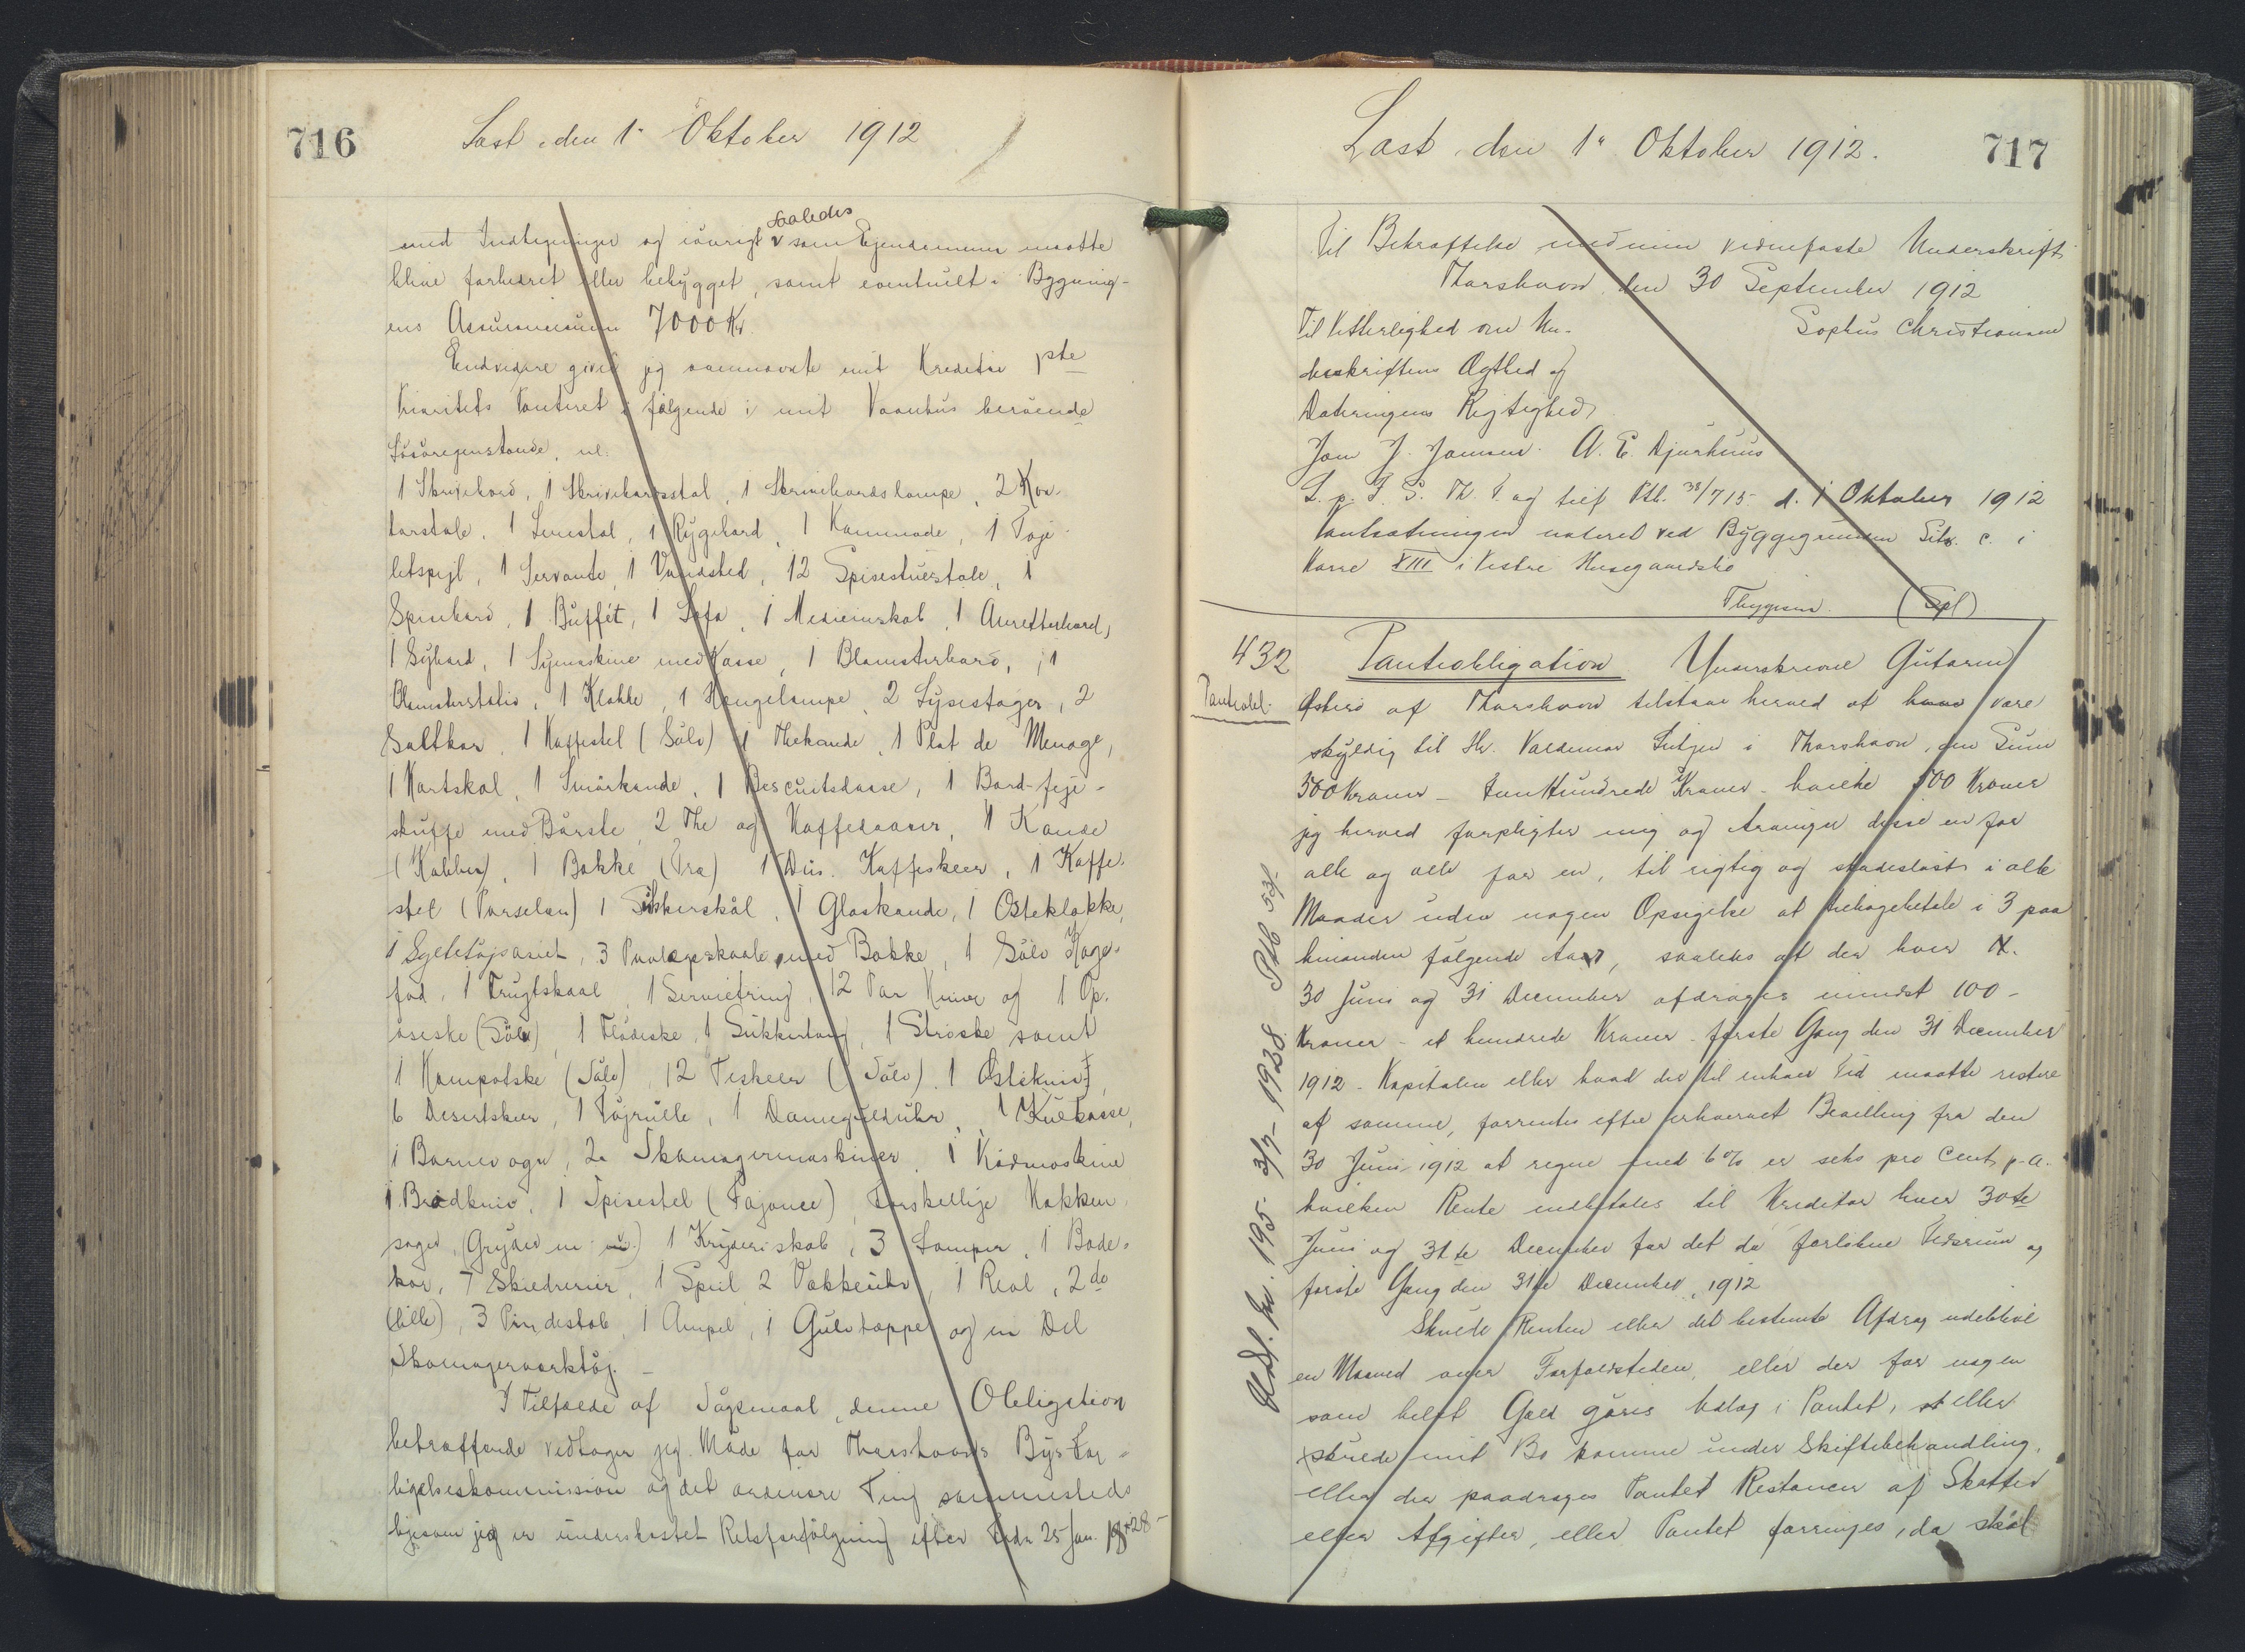 716
Læst den 1' Oktober 1912
med Indtegninger og iøvrigt saaledes som Ejendommen maatte
blive forbedret eller bebygget, samt eventuelt i Bygning-
ens Assurancesum 7000 Kr.
Endvidere giver jeg ovennævnte mit Kreditor 1ste
Prioritets Panteret i følgende i mit Vaanhus beroende
Løsøregenstande, nl.
1 Skrivebord, 1 Skrivebordsstol, 1 Skrivebordslampe, 2 Kon-
torstole, 1 Lænestol, 1 Rygebord, 1 Kommode, 1 Toje-
letspejl, 1 Servante, 1 Vandsted, 12 Spisestuestole, 1
Spisebord, 1 Buffét, 1 Sofa, 1 Medicinskab, 1 Anretterbord,
1 Sybord, 1 Symaskine med Kasse, 1 Blomsterbord, 1
Blomsterstativ, 1 Klokke, 1 Hængelampe, 2 Lysestager, 2
Saltkar, 1 Kaffestel (Sølv) 1 Thekande, 1 Plat de Menage,
1 Kortskal, 1 Smørkande, 1 Bescuitsdaase, 1 Bord-feje-
skuffe med Børste, 2 The og Kaffedaaser, 1 Kande
(Kobber), 1 Bakke (Træ) 1 Dus. Kaffeskeer, 1 Kaffe-
stel (Porselæn) 1 Sukkerskål, 1 Glaskande, 1 Osteklokke,
1 Syltetøjsasiet, 3 Paalægskaale med Bakke, 1 Sølv Kage-
fad, 1 Frugtskaal, 1 Servietring, 12 Par Knive og 1 Op-
øseske (Sølv), 1 Flødeske, 1 Sukkertang, 1 Strøske samt
1 Kompotske (Sølv), 12 Teskeer (Sølv), 1 Ostekniv,
6 Desertskeer, 1 Tøjrulle, 1 Dameguldurhr, 1 Kulkasse,
1 Barnevogn, 2 Skomagermaskiner, 1 Kødmaskine
1 Brødkniv, 1 Spisestel (Fajance), Forskellige Køkken-
sager, (Gryder m. m.) 1 Kryderiskab, 3 Lamper, 1 Bade-
kar, 7 Skilderier, 1 Speil 2 Vækkeuhr, 1 Reol, 2 do
(lille), 3 Pindestole, 1 Ampel, 1 Gulvtæppe og en Del
Skomagerværktøj. –
I Tilfælde af Søgsmaal, denne Obligation
betræffende vedtager jeg Møde for Thorshavns Bys For-
ligelseskommission og det ordinære Ting sammesteds
ligesom jeg er underkastet Retsforfølgning efter Frdn 25 Jan. 1828 –
Læst den 1' Oktober 1912.
717
Til Bekræftelse med min vidnefaste Underskrift
Thorshavn, den 30 September 1912
Til Vitterlighed om Un-
Sophus Christiansen
derskriftens Ægthed og
Dateringens Rigtighed
Jom J. Joensen. A. E. Djurhuus
L. p. F. S. Th. T. og tilf. Ptb. 38/715 d. 1 Oktober 1912
Pantsætningen noteret ved Byggegrunden Litr. c. i
Karre XIII i Vestre Husegaardsbø
Thygesen. (Gpl)
432
Pantobl.
Pantobligation Underskrevne Gutorm
Østerø af Thorshavn tilstaar herved at være
skyldig til Hr. Valdemar Lützen i Thorshavn, den Sum
500 Kroner – fem Hundrede Kroner – hvilke 500 Kroner
jeg herved forpligter mig og Arvinger disse en for
alle og alle for en, til rigtig og skadesløst i alle
Maader uden nogen Opsigelse at tilbagebetale i 3 paa
hinanden følgende Aar, saaledes at der hver
30 Juni og 31 December afdrages mindst 100 –
Kroner – et hundrede Kroner – første Gang den 31 December
1912 – Kapitalen eller hvad der til enhver Tid maatte restere
af samme, forrentes efter erhvervet Bevilling fra den
30 Juni 1912 at regne med 6% er seks pro Cent p. a.
hvilken Rente indbetales til Kreditor hver 30te
Juni og 31te December for det da forløbne Tidsrum og
første Gang den 31te December, 1912
Skulde Renten eller det bestemte Afdrag udeblive
en Maaned over Forfaldstiden, eller der for nogen
som helst Gæld gøres Udlæg i Pantet, eller
skulde mit Bo komme under Skiftebehandling,
eller der paadrages Pantet Restancer af Skatter
eller Afgifter, eller Pantet forringes, da skal
Udsl. Nr. 195. 3/7 – 1928. Ptb 53/